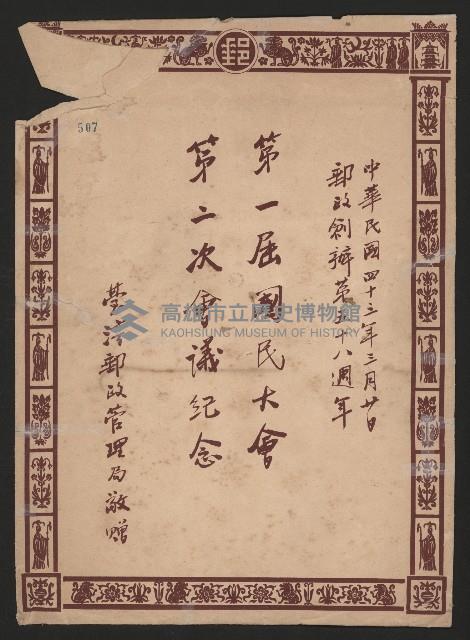 郵
臺
507
中華民國四十三年三月廿日
郵政創辦第五十八週年
第一屆國民大會
第二次會議紀念
臺灣郵政管理局敬贈
高雄市立歷史博物館
KAOHSIUNG MUSEUM OF HISTORY